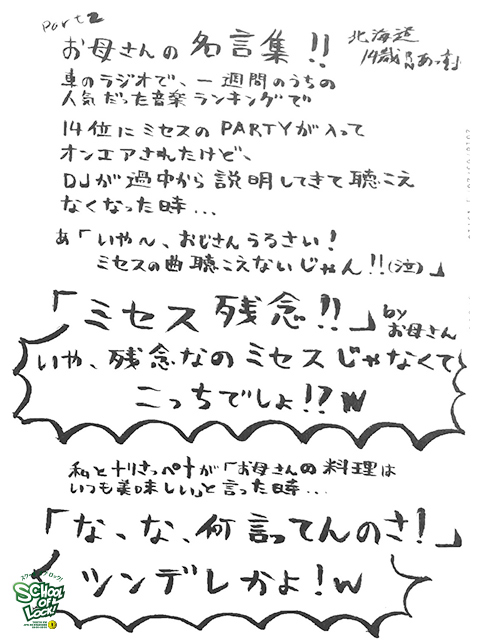 Part2
お母さんの名言集!!
北海道
14歳 RN あっきぃ
車のラジオで、一週間のうちの
人気だった音楽ランキングで
14位にミセスのPARTYが入って
オンエアされたけど、
DJが途中から説明してきて聴こえ
なくなった時...
あ「いや〜、おじさんうるさい!
ミセスの曲聴こえないじゃん!!(泣)」
「ミセス残念!!」by
お母さん
いや、残念なのミセスじゃなくて
こっちでしょ!?w
私と
が「お母さんの料理は
いつも美味しい」と言った時...
「な、な、何言ってんのさ!」
ツンデレかよ!w
スクールオブロック!
SCHOOL
OF
LOCK!